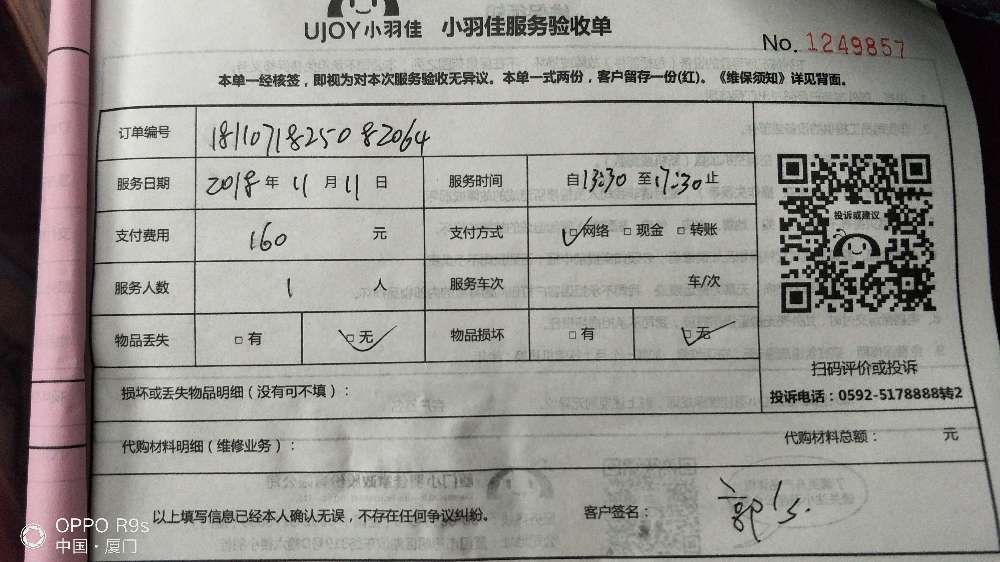 UJOY小羽佳 小羽佳服务验收单
No. 1249857
本单一经核签，即视为对本次服务验收无异议。本单一式两份，客户留存一份(红)。《维保须知》详见背面。
订单编号 1811071825082064
服务日期 2018年 11月 11日 服务时间 自13:30至17:30止
支付费用 160 元 支付方式 ☑网络 □现金 □转账
服务人数 1 人 服务车次 车/次
物品丢失 □有 ☑无 物品损坏 □有 ☑无
投诉或建议
扫码评价或投诉
投诉电话：0592-5178888转2
损坏或丢失物品明细（没有可不填）：
代购材料明细（维修业务）： 代购材料总额： 元
以上填写信息已经本人确认无误，不存在任何争议纠纷。 客户签名：
OPPO R9s
中国·厦门